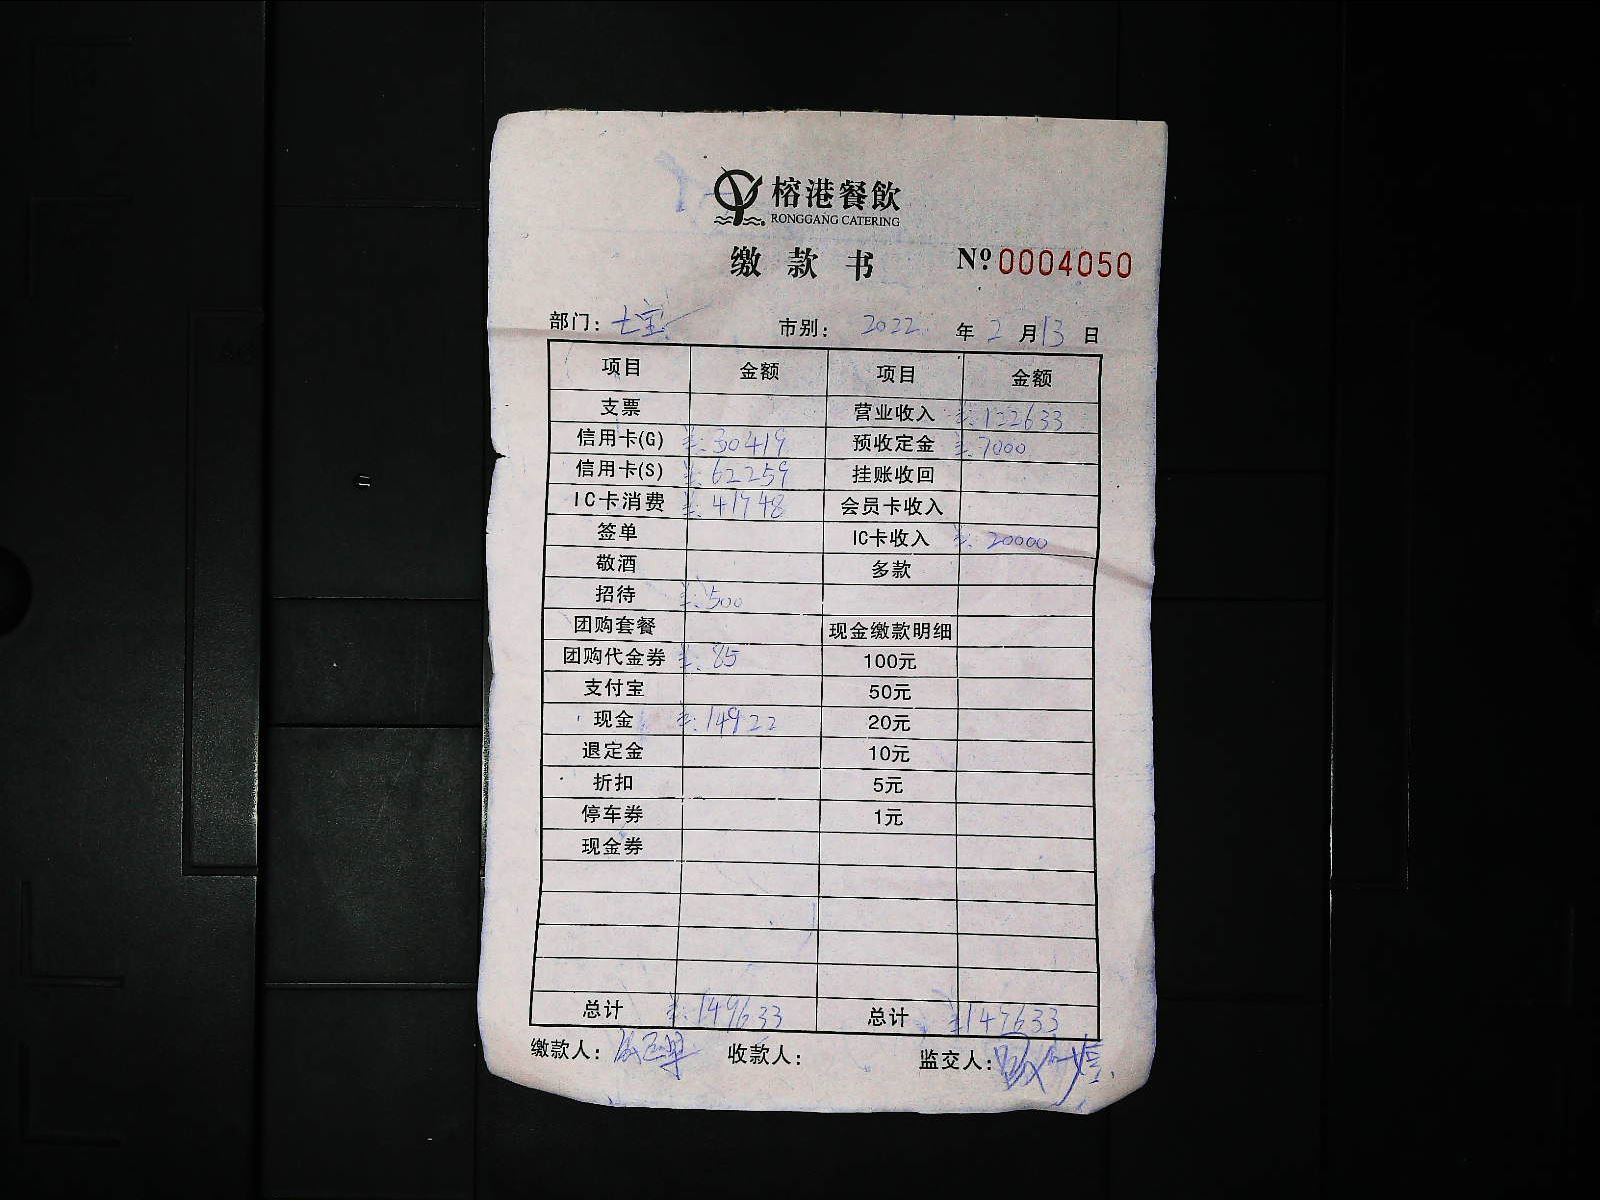 榕港餐飲
RONGGANG CATERING
缴款书 Nº 0004050
部门: 七宝 市别: 2022 年 2 月 13 日
项目 金额 项目 金额
支票 营业收入 ¥:122633
信用卡(G) ¥:30419 预收定金 ¥:7000
信用卡(S) ¥:62259 挂账收回
IC卡消费 ¥:41448 会员卡收入
签单 IC卡收入 ¥:20000
敬酒 多款
招待 ¥:500
团购套餐 现金缴款明细
团购代金券 ¥:85 100元
支付宝 50元
现金 ¥:14922 20元
退定金 10元
折扣 5元
停车券 1元
现金券
总计 ¥:149633 总计 ¥149633
缴款人: 收款人: 监交人: